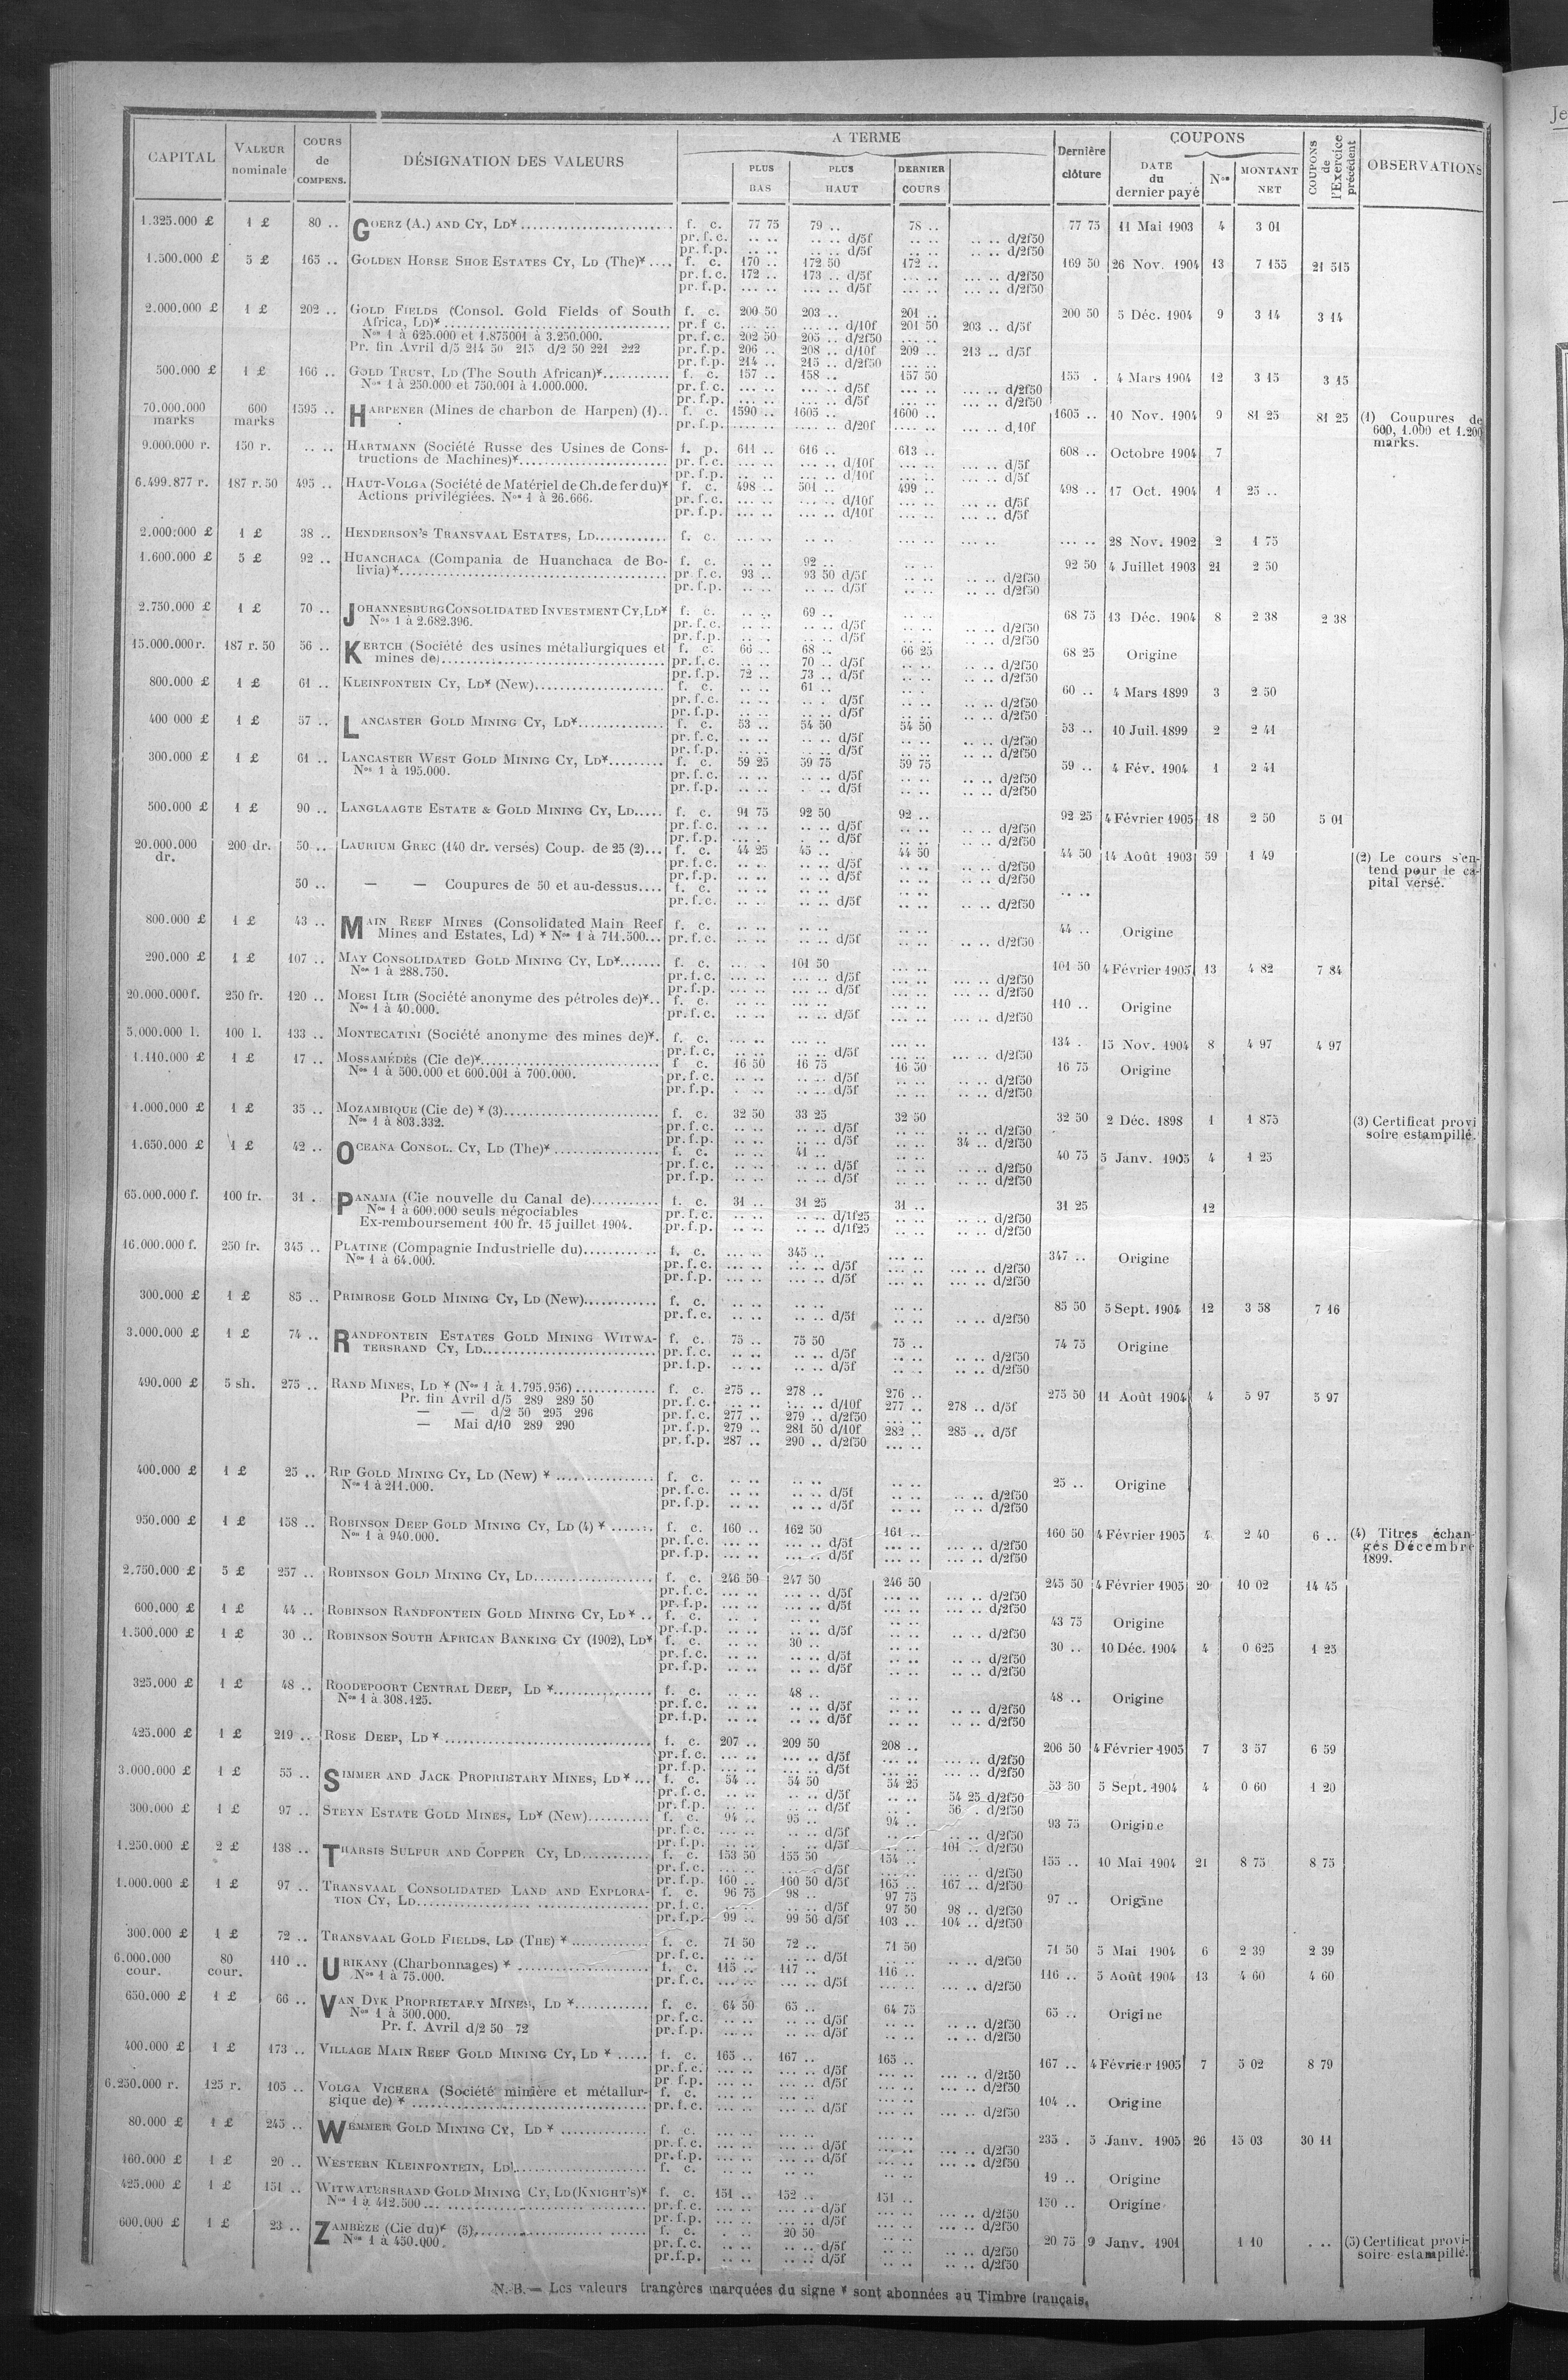 CAPITAL | VALEUR nominale | COURS de COMPENS. | DÉSIGNATION DES VALEURS | A TERME | PLUS BAS | PLUS HAUT | DERNIER COURS | Dernière clôture | COUPONS | DATE du dernier payé | Nos | MONTANT NET | COUPONS de l'Exercice précédent | OBSERVATIONS
1.325.000 £ 1 £ 80 .. GOERZ (A.) AND CY, LD* f. c. 77 75 79 .. 78 .. 77 75 11 Mai 1903 4 3 01
pr. f. c. .. .. .. .. d/5f .. .. .. .. d/2f50
pr. f.p. .. .. .. .. d/5f .. .. .. .. d/2f50
1.500.000 £ 5 £ 165 .. GOLDEN HORSE SHOE ESTATES CY, LD (The)* f. c. 170 .. 172 50 172 .. 169 50 26 Nov. 1904 13 7 155 21 515
pr. f. c. 172 .. 173 .. d/5f ... .. ... .. d/2f50
pr. f.p. ... .. ... .. d/5f ... .. ... .. d/2f50
2.000.000 £ 1 £ 202 .. GOLD FIELDS (Consol. Gold Fields of South f. c. 200 50 203 .. 201 .. 200 50 5 Déc. 1904 9 3 14 3 14
Africa, LD)* pr. f c. ... .. ... .. d/10f 201 50 203 .. d/5f
Nos 1 à 625.000 et 1.875001 à 3.250.000. pr. f.c. 202 50 205 .. d/2f50 ... ..
Pr. fin Avril d/5 214 50 215 d/2 50 221 222 pr. f.p. 206 .. 208 .. d/10f 209 .. 213 .. d/5f
pr. f.p. 214 .. 215 .. d/2f50 ... ..
500.000 £ 1 £ 166 .. GOLD TRUST, LD (The South African)* f. c. 157 .. 158 .. 157 50 155 . 4 Mars 1904 12 3 15 3 15
Nos 1 à 250.000 et 750.001 à 1.000.000. pr. f. c. ... .. ... .. d/5f ... .. ... .. d/2f50
pr. f.p. ... .. ... .. d/5f ... .. ... .. d/2f50
70.000.000 marks 600 marks 1595 .. HARPENER (Mines de charbon de Harpen) (1) f. c. 1590 .. 1605 .. 1600 .. 1605 .. 10 Nov. 1904 9 81 25 81 25 (1) Coupures de 600, 1.000 et 1.200 marks.
pr. f.p. .... .. .... .. d/20f .... .. ... .. d,10f
9.000.000 r. 150 r. .. .. HARTMANN (Société Russe des Usines de Cons- f. p. 611 .. 616 .. 613 .. 608 .. Octobre 1904 7
tructions de Machines)* pr. f. c. ... .. ... .. d/10f ... .. ... .. d/5f
pr. f.p. ... .. ... .. d/10f ... .. ... .. d/5f
6.499.877 r. 187 r. 50 495 .. HAUT-VOLGA (Société de Matériel de Ch. de fer du)* f. c. 498 .. 501 .. 499 .. 498 .. 17 Oct. 1904 1 25 ..
Actions privilégiées. Nos 1 à 26.666. pr. f. c. ... .. ... .. d/10f ... .. ... .. d/5f
pr. f.p. ... .. ... .. d/10f ... .. ... .. d/5f
2.000.000 £ 1 £ 38 .. HENDERSON'S TRANSVAAL ESTATES, LD f. c. ... .. .. .. ... .. ... .. 28 Nov. 1902 2 1 75
1.600.000 £ 5 £ 92 .. HUANCHACA (Compania de Huanchaca de Bo- f. c. .. .. 92 .. .. .. 92 50 4 Juillet 1903 21 2 50
livia)* pr. f. c. 93 .. 93 50 d/5f .. .. .. .. d/2f50
pr. f.p. .. .. .. .. d/5f .. .. .. .. d/2f50
2.750.000 £ 1 £ 70 .. JOHANNESBURG CONSOLIDATED INVESTMENT CY, LD* f. c. .. .. 69 .. .. .. 68 75 13 Déc. 1904 8 2 38 2 38
Nos 1 à 2.682.396. pr. f. c. .. .. .. .. d/5f .. .. .. .. d/2f50
pr. f.p. .. .. .. .. d/5f .. .. .. .. d/2f50
15.000.000 r. 187 r. 50 56 .. KERTCH (Société des usines métallurgiques et f. c. 66 .. 68 .. 66 25 68 25 Origine
mines de) pr. f. c. .. .. 70 .. d/5f .. .. .. .. d/2f50
pr. f.p. 72 .. 73 .. d/5f .. .. .. .. d/2f50
800.000 £ 1 £ 61 .. KLEINFONTEIN CY, LD* (New) f. c. .. .. 61 .. .. .. 60 .. 4 Mars 1899 3 2 50
pr. f. c. .. .. .. .. d/5f .. .. .. .. d/2f50
pr. f.p. .. .. .. .. d/5f .. .. .. .. d/2f50
400 000 £ 1 £ 57 .. LANCASTER GOLD MINING CY, LD* f. c. 53 .. 54 50 54 50 53 .. 10 Juil. 1899 2 2 41
pr. f. c. .. .. .. .. d/5f .. .. .. .. d/2f50
pr. f.p. .. .. .. .. d/5f .. .. .. .. d/2f50
300.000 £ 1 £ 61 .. LANCASTER WEST GOLD MINING CY, LD* f. c. 59 25 59 75 59 75 59 .. 4 Fév. 1904 1 2 41
Nos 1 à 195.000. pr. f. c. .. .. .. .. d/5f .. .. .. .. d/2f50
pr. f.p. .. .. .. .. d/5f .. .. .. .. d/2f50
500.000 £ 1 £ 90 .. LANGLAAGTE ESTATE & GOLD MINING CY, LD f. c. 91 75 92 50 92 .. 92 25 4 Février 1905 18 2 50 5 01
pr. f. c. .. .. .. .. d/5f .. .. .. .. d/2f50
pr. f.p. .. .. .. .. d/5f .. .. .. .. d/2f50
20.000.000 dr. 200 dr. 50 .. LAURIUM GREC (140 dr. versés) Coup. de 25 (2) f. c. 44 25 45 .. 44 50 44 50 14 Août 1903 59 1 49 (2) Le cours s'en- tend pour le ca- pital versé.
pr. f. c. .. .. .. .. d/5f .. .. .. .. d/2f50
pr. f.p. .. .. .. .. d/5f .. .. .. .. d/2f50
50 .. — — Coupures de 50 et au-dessus f. c. .. .. .. .. .. .. .. ..
pr. f. c. .. .. .. .. d/5f .. .. .. .. d/2f50
800.000 £ 1 £ 43 .. MAIN REEF MINES (Consolidated Main Reef f. c. .. .. .. .. .. .. 44 .. Origine
Mines and Estates, Ld) * Nos 1 à 711.500 pr. f. c. .. .. .. .. d/5f .. .. .. .. d/2f50
290.000 £ 1 £ 107 .. MAY CONSOLIDATED GOLD MINING CY, LD* f. c. ... . 101 50 ... .. 101 50 4 Février 1905 13 4 82 7 84
Nos 1 à 288.750. pr. f. c. ... .. ... .. d/5f ... .. ... .. d/2f50
pr. f.p. ... .. ... .. d/5f ... .. ... .. d/2f50
20.000.000 f. 250 fr. 120 .. MOESI ILIR (Société anonyme des pétroles de)* f. c. .. .. .. .. .. .. 110 .. Origine
Nos 1 à 40.000. pr. f. c. .. .. .. .. d/5f .. .. .. .. d/2f50
5.000.000 l. 100 l. 133 .. MONTECATINI (Société anonyme des mines de)* f. c. ... .. .. .. ... .. 134 . 15 Nov. 1904 8 4 97 4 97
pr. f. c. ... .. .. .. d/5f ... .. ... .. d/2f50
1.110.000 £ 1 £ 17 .. MOSSAMÉDÈS (Cie de)* f c. 16 50 16 75 16 50 16 75 Origine
Nos 1 à 500.000 et 600.001 à 700.000. pr. f. c. .. .. .. .. d/5f .. .. .. .. d/2f50
pr. f.p. .. .. .. .. d/5f .. .. .. .. d/2f50
1.000.000 £ 1 £ 35 .. MOZAMBIQUE (Cie de) * (3) f. c. 32 50 33 25 32 50 32 50 2 Déc. 1898 1 1 875 (3) Certificat provi soire estampillé.
Nos 1 à 803.332. pr. f. c. .. .. .. .. d/5f .. .. .. .. d/2f50
pr. f.p. .. .. .. .. d/5f .. .. 34 .. d/2f50
1.650.000 £ 1 £ 42 .. OCEANA CONSOL. CY, LD (The)* f. c. .. .. 41 .. .. .. 40 75 5 Janv. 1905 4 1 25
pr. f. c. .. .. .. .. d/5f .. .. .. .. d/2f50
pr. f.p. .. .. .. .. d/5f .. .. .. .. d/2f50
65.000.000 f. 100 fr. 31 . PANAMA (Cie nouvelle du Canal de) f. c. 31 .. 31 25 31 .. 31 25 12
Nos 1 à 600.000 seuls négociables pr. f. c. .. .. .. .. d/1f25 .. .. .. .. d/2f50
Ex-remboursement 100 fr. 15 juillet 1904. pr. f.p. .. .. .. .. d/1f25 .. .. .. .. d/2f50
16.000.000 f. 250 fr. 345 .. PLATINE (Compagnie Industrielle du) f. c. ... .. 345 .. ... .. 347 .. Origine
Nos 1 à 64.000. pr. f. c. ... .. ... .. d/5f ... .. ... .. d/2f50
pr. f.p. ... .. ... .. d/5f ... .. ... .. d/2f50
300.000 £ 1 £ 85 .. PRIMROSE GOLD MINING CY, LD (New) f. c. .. .. .. .. .. .. 85 50 5 Sept. 1904 12 3 58 7 16
pr. f. c. .. .. .. .. d/5f .. .. .. .. d/2f50
3.000.000 £ 1 £ 74 .. RANDFONTEIN ESTATES GOLD MINING WITWA- f. c. 75 .. 75 50 75 .. 74 75 Origine
TERSRAND CY, LD pr. f. c. .. .. .. .. d/5f .. .. .. .. d/2f50
pr. f.p. .. .. .. .. d/5f .. .. .. .. d/2f50
490.000 £ 5 sh. 275 .. RAND MINES, LD * (Nos 1 à 1.795.956) f. c. 275 .. 278 .. 276 .. 275 50 11 Août 1904 4 5 97 5 97
Pr. fin Avril d/5 289 289 50 pr. f. c. ... .. ... .. d/10f 277 .. 278 .. d/5f
— — d/2 50 295 296 pr. f. c. 277 .. 279 .. d/2f50 ... ..
— Mai d/10 289 290 pr. f.p. 279 .. 281 50 d/10f 282 .. 285 .. d/5f
pr. f.p. 287 .. 290 .. d/2f50 ... ..
400.000 £ 1 £ 25 .. RIP GOLD MINING CY, LD (New) * f. c. .. .. .. .. .. .. 25 .. Origine
Nos 1 à 211.000. pr. f. c. .. .. .. .. d/5f .. .. .. .. d/2f50
pr. f.p. .. .. .. .. d/5f .. .. .. .. d/2f50
950.000 £ 1 £ 158 .. ROBINSON DEEP GOLD MINING CY, LD (4) * f. c. 160 .. 162 50 161 .. 160 50 4 Février 1905 4 2 40 6 .. (4) Titres échan- gés Décembre 1899.
Nos 1 à 940.000. pr. f. c. ... .. ... .. d/5f ... .. ... .. d/2f50
pr. f.p. ... .. ... .. d/5f ... .. ... .. d/2f50
2.750.000 £ 5 £ 257 .. ROBINSON GOLD MINING CY, LD f. c. 246 50 247 50 246 50 245 50 4 Février 1905 20 10 02 14 45
pr. f. c. ... .. ... .. d/5f ... .. ... .. d/2f50
pr. f.p. ... .. ... .. d/5f ... .. ... .. d/2f50
600.000 £ 1 £ 44 .. ROBINSON RANDFONTEIN GOLD MINING CY, LD * f. c. .. . .. .. .. .. 43 75 Origine
pr. f.p. .. .. .. .. d/5f .. .. .. .. d/2f50
1.500.000 £ 1 £ 30 .. ROBINSON SOUTH AFRICAN BANKING CY (1902), LD* f. c. .. .. 30 .. .. .. 30 .. 10 Déc. 1904 4 0 625 1 25
pr. f. c. .. .. .. .. d/5f .. .. .. .. d/2f50
pr. f.p. .. .. .. .. d/5f .. .. .. .. d/2f50
325.000 £ 1 £ 48 .. ROODEPOORT CENTRAL DEEP, LD * f. c. .. .. 48 .. .. .. 48 .. Origine
Nos 1 à 308.125. pr. f. c. .. .. .. .. d/5f .. .. .. .. d/2f50
pr. f.p. .. .. .. .. d/5f .. .. .. .. d/2f50
425.000 £ 1 £ 219 .. ROSE DEEP, LD * f. c. 207 .. 209 50 208 .. 206 50 4 Février 1905 7 3 57 6 59
pr. f. c. ... .. ... .. d/5f ... .. ... .. d/2f50
pr. f.p. ... .. ... .. d/5f ... .. ... .. d/2f50
3.000.000 £ 1 £ 55 .. SIMMER AND JACK PROPRIETARY MINES, LD * f. c. 54 .. 54 50 54 25 53 50 5 Sept. 1904 4 0 60 1 20
pr. f. c. .. .. .. .. d/5f .. .. 54 25 d/2f50
pr. f.p. .. .. .. .. d/5f .. . 56 . d/2f50
300.000 £ 1 £ 97 .. STEYN ESTATE GOLD MINES, LD* (New) f. c. 94 .. 95 .. 94 .. 93 75 Origine
pr. f. c. .. .. .. .. d/5f .. .. .. .. d/2f50
pr. f.p. .. .. .. .. d/5f .. .. 101 .. d/2f50
1.250.000 £ 2 £ 138 .. THARSIS SULFUR AND COPPER CY, LD f. c. 153 50 155 50 154 .. 155 .. 10 Mai 1904 21 8 75 8 75
pr. f. c. ... .. ... .. d/5f ... .. ... .. d/2f50
pr. f.p. 160 .. 160 50 d/5f 165 .. 167 .. d/2f50
1.000.000 £ 1 £ 97 .. TRANSVAAL CONSOLIDATED LAND AND EXPLORA- f. c. 96 75 98 .. 97 75 97 .. Origine
TION CY, LD pr. f. c. .. .. .. .. d/5f 97 50 98 .. d/2f50
pr. f.p. 99 .. 99 50 d/5f 103 .. 104 .. d/2f50
300.000 £ 1 £ 72 .. TRANSVAAL GOLD FIELDS, LD (THE) * f. c. 71 50 72 .. 71 50 71 50 5 Mai 1904 6 2 39 2 39
pr. f. c. .. .. .. .. d/5f .. .. .. .. d/2f50
6.000.000 cour. 80 cour. 110 .. URIKANY (Charbonnages) * f. c. 115 .. 117 .. 116 .. 116 .. 5 Août 1904 13 4 60 4 60
Nos 1 à 75.000. pr. f. c. ... .. ... .. d/5f ... .. ... .. d/2f50
650.000 £ 1 £ 66 .. VAN DYK PROPRIETARY MINES, LD * f. c. 64 50 65 .. 64 75 65 .. Origine
Nos 1 à 500.000. pr. f. c. .. .. .. .. d/5f .. .. .. .. d/2f50
Pr. f. Avril d/2 50 72 pr. f.p. .. .. .. .. d/5f .. .. .. .. d/2f50
400.000 £ 1 £ 173 .. VILLAGE MAIN REEF GOLD MINING CY, LD * f. c. 165 .. 167 .. 165 .. 167 .. 4 Février 1905 7 5 02 8 79
pr. f. c. ... .. ... .. d/5f ... .. ... .. d/2f50
pr f.p. ... .. ... .. d/5f ... .. ... .. d/2f50
6.250.000 r. 125 r. 105 .. VOLGA VICHERA (Société minière et métallur- f. c. ... .. ... .. ... .. 104 .. Origine
gique de) * pr. f. c. ... .. ... .. d/5f ... .. ... .. d/2f50
80.000 £ 1 £ 245 .. WEMMER GOLD MINING CY, LD * f. c. ... .. ... .. ... .. 235 . 5 Janv. 1905 26 15 03 30 11
pr. f. c. ... .. ... .. d/5f ... .. ... .. d/2f50
pr. f.p. ... .. ... .. d/5f ... .. ... .. d/2f50
160.000 £ 1 £ 20 .. WESTERN KLEINFONTEIN, LD f. c. 19 .. Origine
425.000 £ 1 £ 151 .. WITWATERSRAND GOLD MINING CY, LD (KNIGHT'S)* f. c. 151 .. 152 .. 151 .. 150 .. Origine
Nos 1 à 412.500 pr. f. c. ... .. ... .. d/5f ... .. ... .. d/2f50
pr. f.p. ... .. ... .. d/5f ... .. ... .. d/2f50
600.000 £ 1 £ 23 .. ZAMBÈZE (Cie du)* (5) f. c. .. . 20 50 .. .. 20 75 9 Janv. 1901 1 10 . .. (5) Certificat provi- soire estampillé.
Nos 1 à 450.000. pr. f. c. .. .. .. .. d/5f .. .. .. .. d/2f50
pr. f.p. .. .. .. .. d/5f .. .. .. .. d/2f50
N.-B. — Les valeurs trangères marquées du signe * sont abonnées au Timbre français.
Je